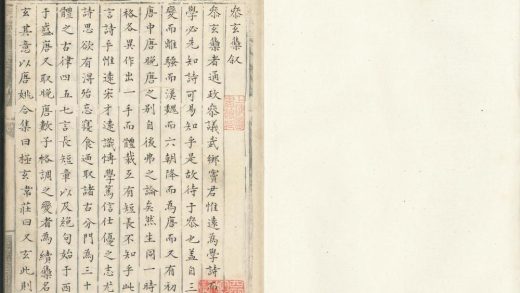 叅玄集叙
叅玄集者通政叅議武鄉竇君惟遠爲學詩
學必先知詩可易知乎是故待于叅也盖自三
變而離騷而漢魏而六朝降而爲唐而又有初
唐中唐晚唐之别自後弗之論矣然生同一時
格各異作出一手而體裁互有短長不知乎此
言詩乎惟遠宋才遠識愽學篤信仕優之志尤
詩思欲有得殆忘寢食通取諸古分門爲三十
體之古律四五七言長短章以及絕句始于西
于盛唐又取晚唐數子格調之變者爲續集名
玄其意以唐姚合集曰極玄韋莊曰又玄此則